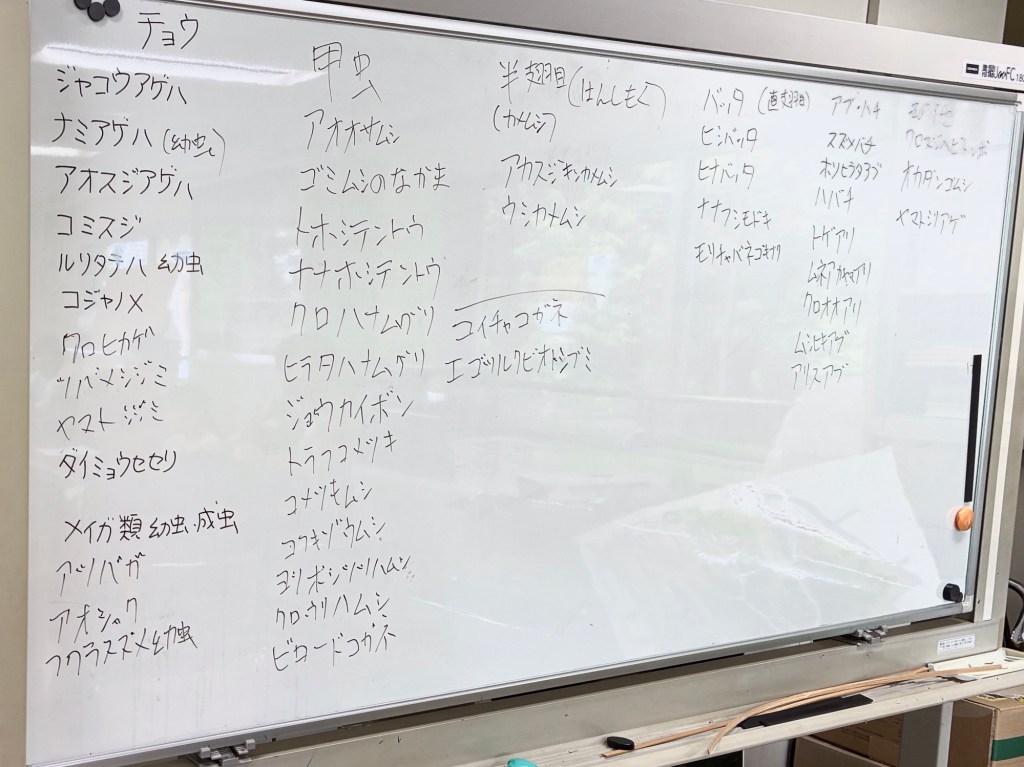 チョウ
ジャコウアゲハ
ナミアゲハ (幼虫)
アオスジアゲハ
コミスジ
ルリタテハ 幼虫
コジャノメ
クロヒカゲ
ツバメシジミ
ヤマトシジミ
ダイミョウセセリ
メイガ類 幼虫・成虫
アツバガ
アオシャク
スズメ幼虫
甲虫
アオオサムシ
ゴミムシのなかま
トホシテントウ
ナナホシテントウ
クロハナムグリ
ヒラタハナムグリ
ジョウカイボン
トラフコメツキ
コメツキムシ
コフキゾウムシ
ヨツボシツツハムシ
クロウリハムシ
ビロードコガネ
半翅目(はんしもく)
(カメムシ)
アカスジキンカメムシ
ウシカメムシ
コイチャコガネ
エゴツルクビオトシブミ
バッタ (直翅目)
ヒシバッタ
ヒナバッタ
ナナフシモドキ
モリチャバネゴキブリ
アブ・ハチ
スズメバチ
ホソヒラタアブ
ハバチ
トゲアリ
ムネアカオオアリ
クロオオアリ
ムシヒキアブ
アリスアブ
その他
クロスジヘビトンボ
オカダンゴムシ
ヤマトシリアゲ